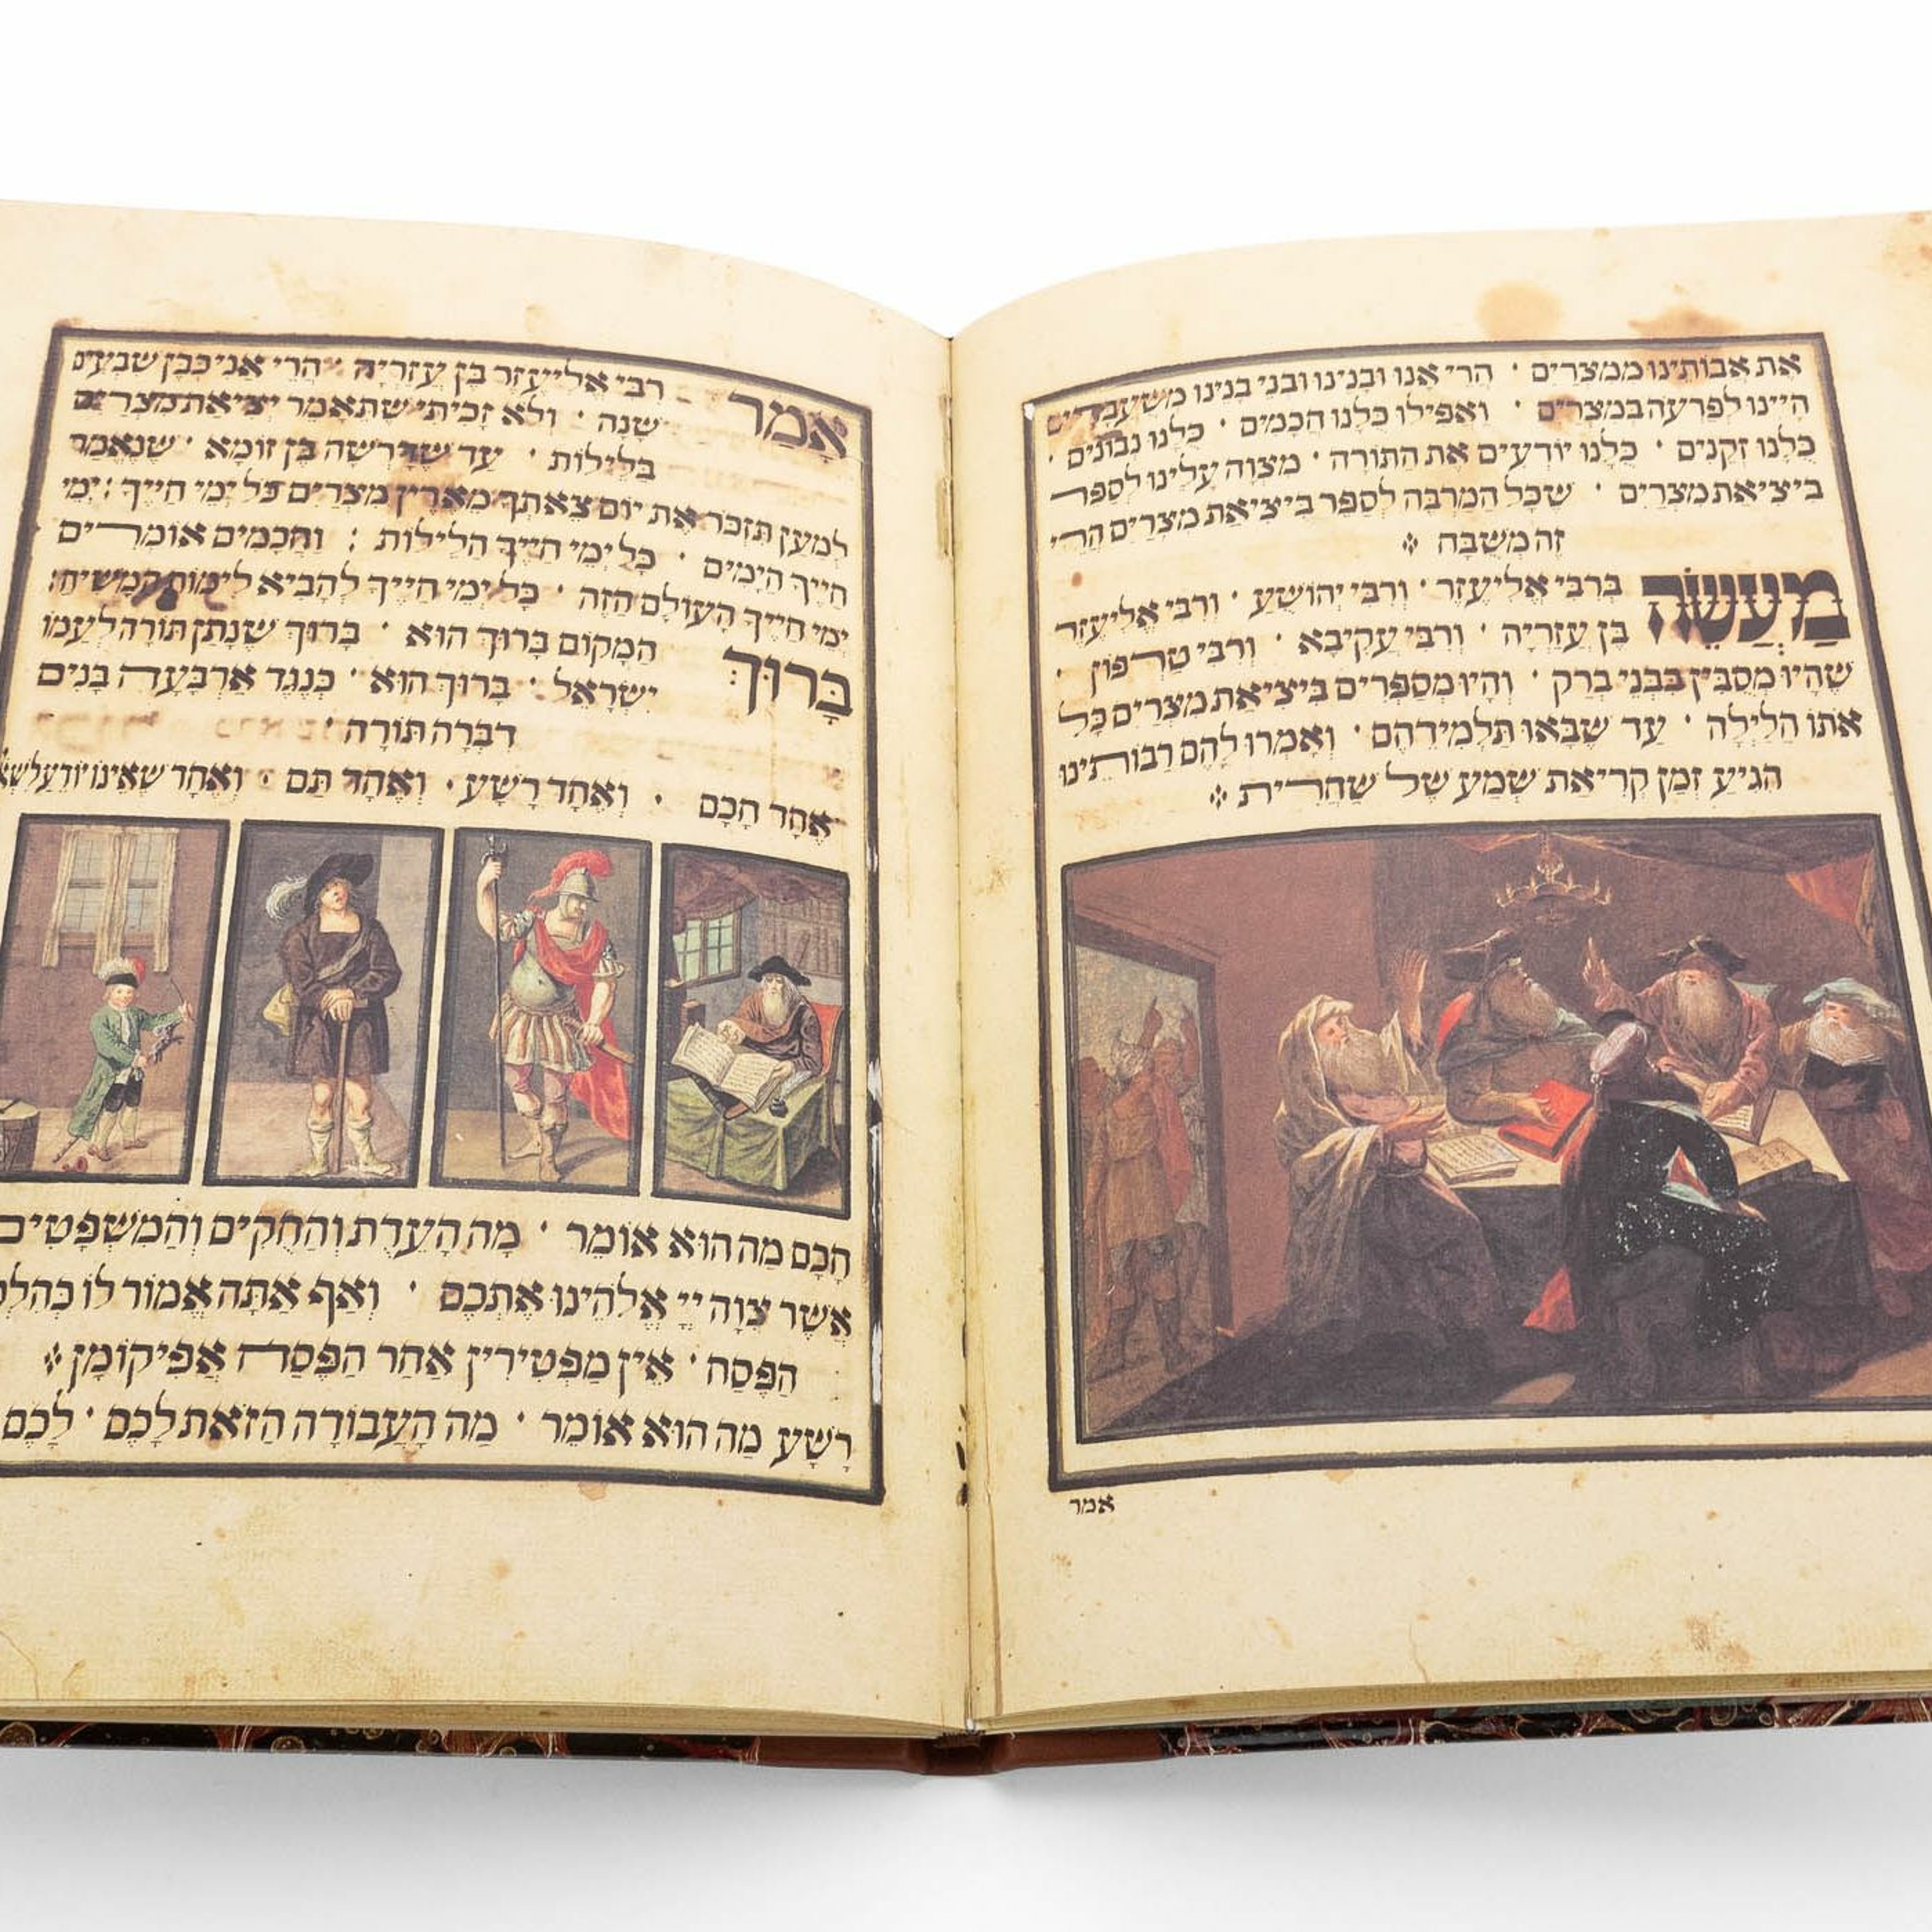 את אבותינו ממצרים · הרי אנו ובנינו ובני בנינו משעבדים
היינו לפרעה במצרים · ואפילו כלנו חכמים · כלנו נבונים ·
כלנו זקנים · כלנו יודעים את התורה · מצוה עלינו לספר
ביציאת מצרים · שכל המרבה לספר ביציאת מצרים הרי
זה משבח
מעשה ברבי אליעזר · ורבי יהושע · ורבי אליעזר
בן עזריה · ורבי עקיבא · ורבי טרפון ·
שהיו מסבין בבני ברק · והיו מספרים ביציאת מצרים כל
אתו הלילה · עד שבאו תלמידהם · ואמרו להם רבותינו
הגיע זמן קריאת שמע של שחרית
אמר
אמר רבי אליעזר בן עזריה · הרי אני כבן שבעים
שנה · ולא זכיתי שתאמר יציאת מצרים
בלילות · עד שדרשה בן זומא · שנאמר
למען תזכר את יום צאתך מארץ מצרים כל ימי חייך : ימי
חייך הימים · כל ימי חייך הלילות : וחכמים אומרים
ימי חייך העולם הזה · כל ימי חייך להביא לימות המשיח:
ברוך המקום ברוך הוא · ברוך שנתן תורה לעמו
ישראל · ברוך הוא · כנגד ארבעה בנים
דברה תורה ·
אחד חכם · ואחד רשע · ואחד תם · ואחד שאינו יודע
חכם מה הוא אומר · מה העדת והחקים והמשפטים
אשר צוה יי אלהינו אתכם · ואף אתה אמור לו
הפסח · אין מפטירין אחר הפסח אפיקומן
רשע מה הוא אומר · מה העבודה הזאת לכם · לכם